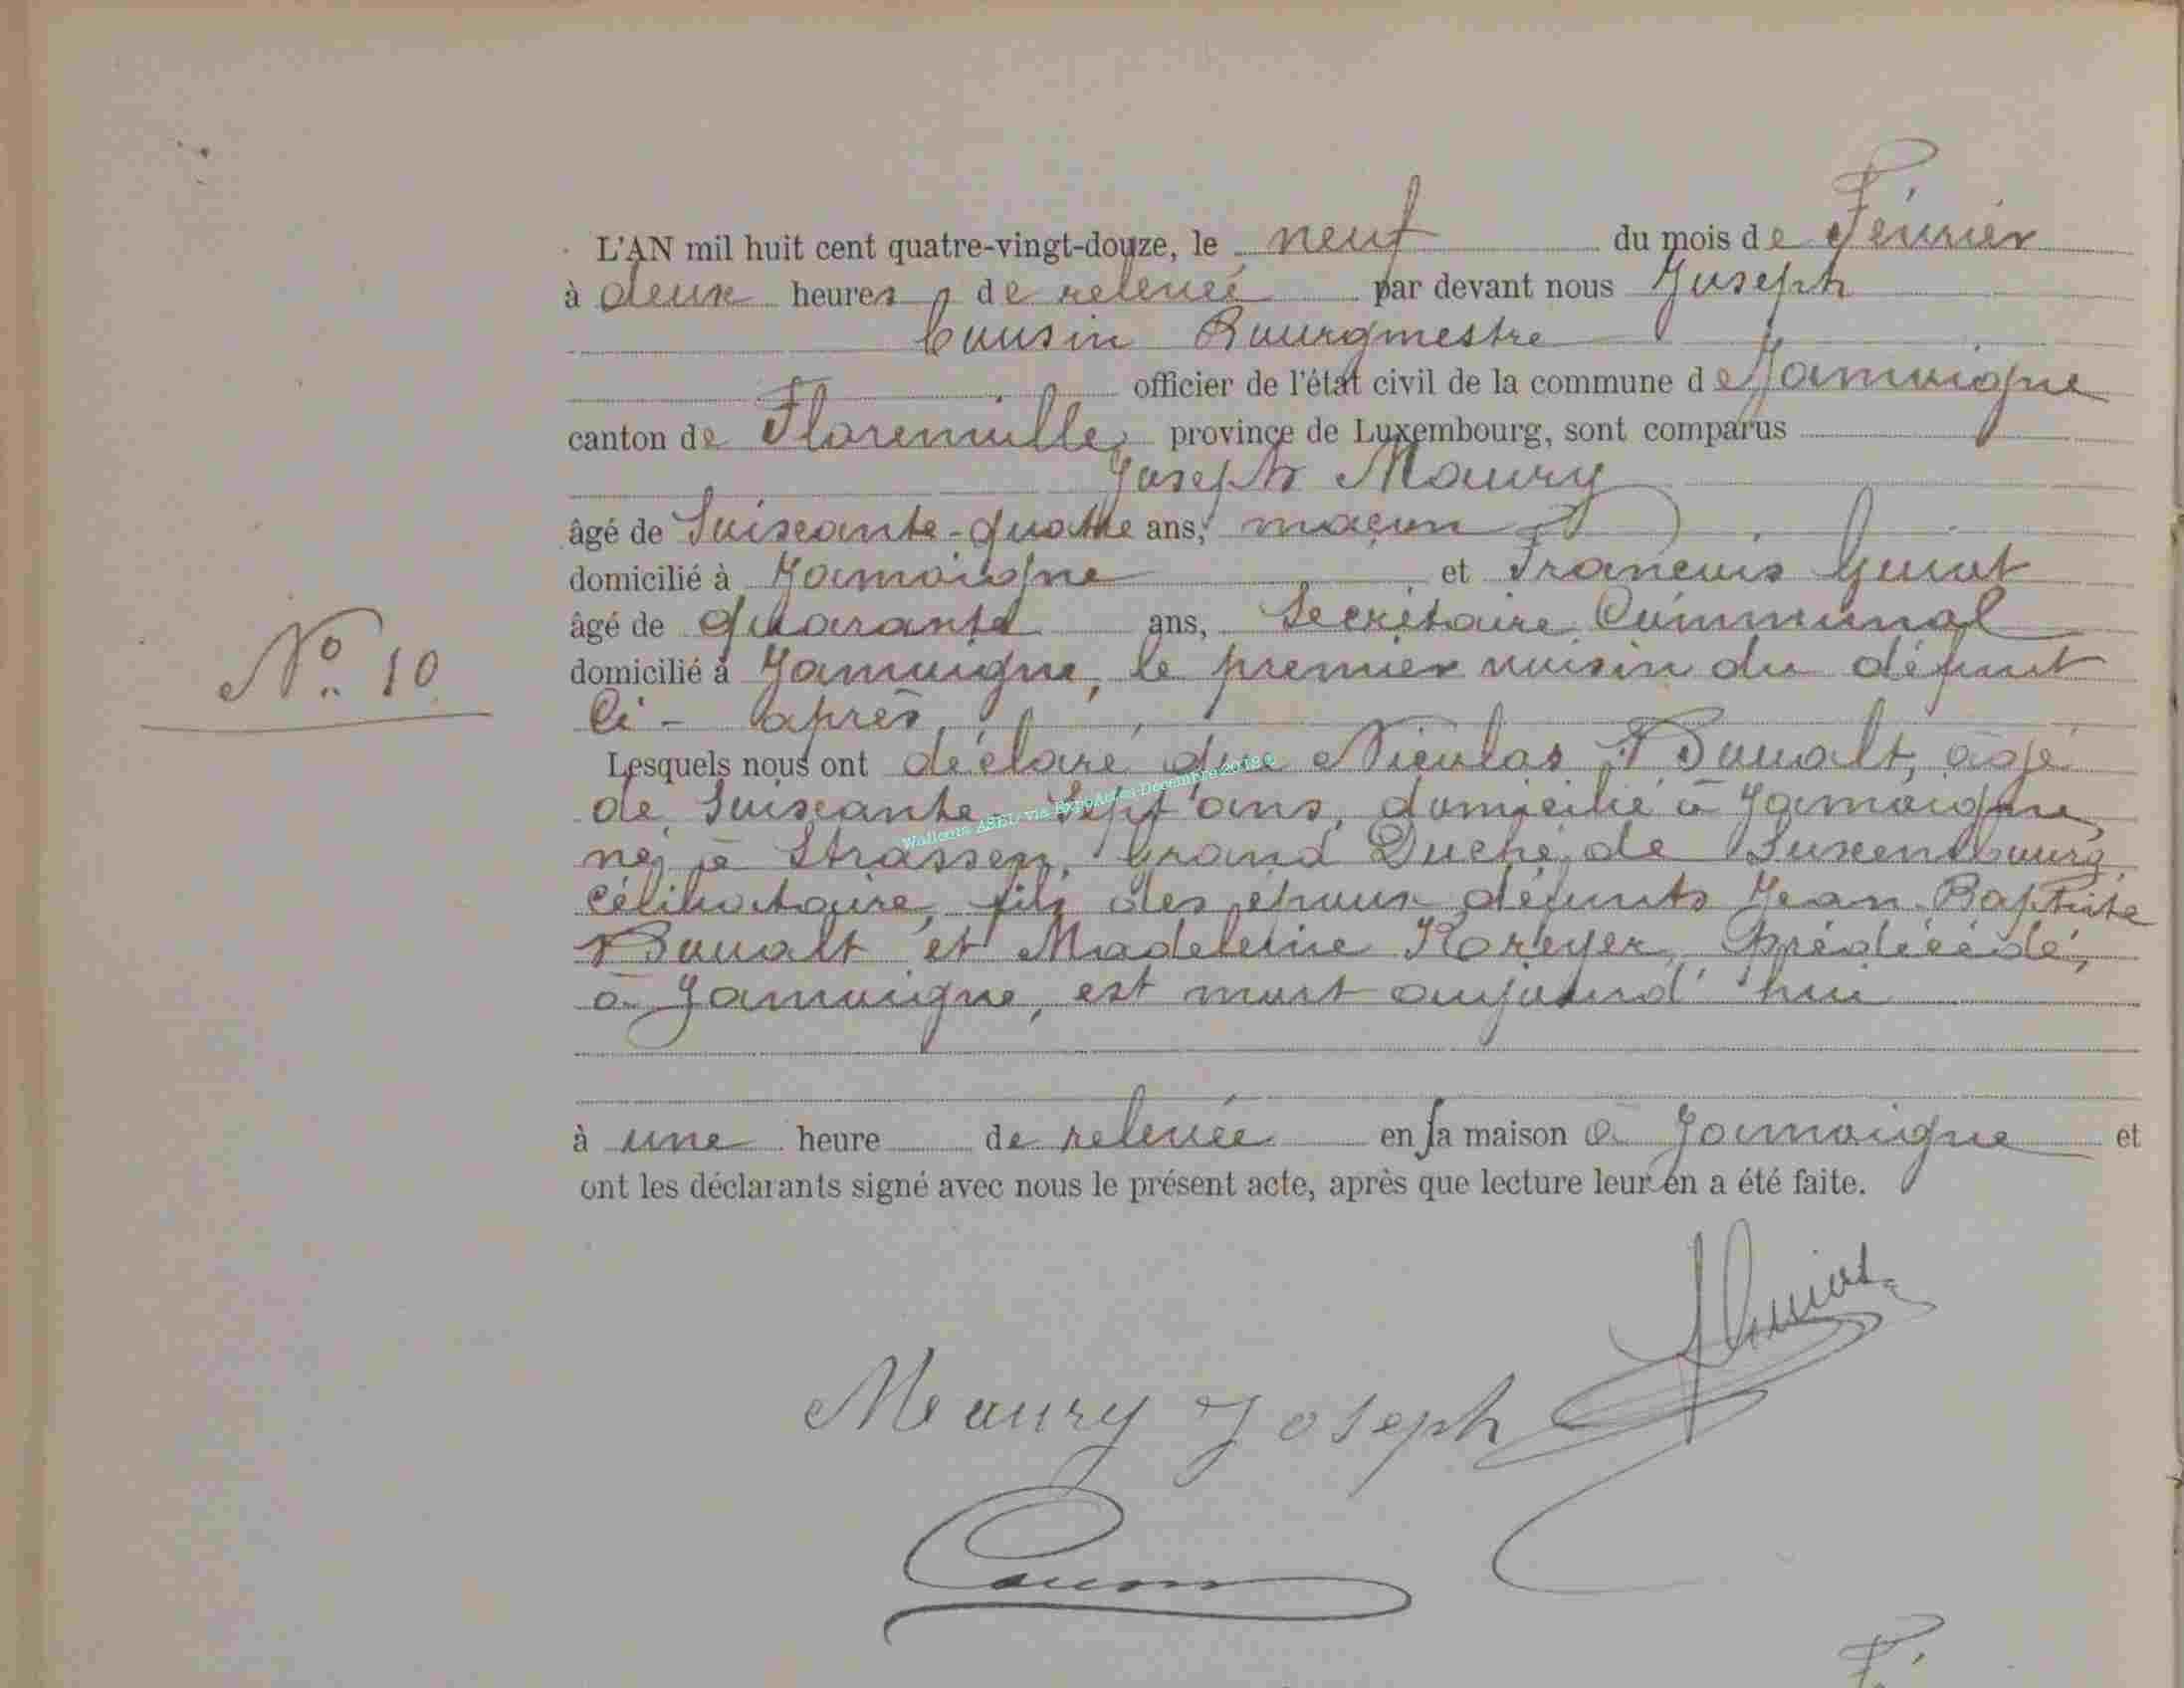 L'AN mil huit cent quatre-vingt-douze, le neuf du mois de Février
à deux heures de relevée par devant nous Joseph
Cousin Bourgmestre
officier de l'état civil de la commune de Jamoigne
canton de Florenville, province de Luxembourg, sont comparus
Joseph Maury
âgé de Soixante-quatre ans, maçon
domicilié à Jamoigne et François Guiot
âgé de quarante ans, Secrétaire Communal
N° 10
domicilié à Jamoigne, le premier voisin du défunt
Ci-après,
Lesquels nous ont déclaré que Nicolas Bouvalt, âgé
de Soixante-Sept ans, domicilié à Jamoigne,
né à Strassen, Grand Duché de Luxembourg,
célibataire, fils des époux défunts Jean-Baptiste
Bouvalt et Madeleine Koreyer, prédécédé,
à Jamoigne, est mort aujourd'hui
à une heure de relevée en sa maison à Jamoigne et
ont les déclarants signé avec nous le présent acte, après que lecture leur en a été faite.
Guiot
Maury Joseph
Cousin
Wallonia ASBL via ExpoActes Décembre 2018 ©